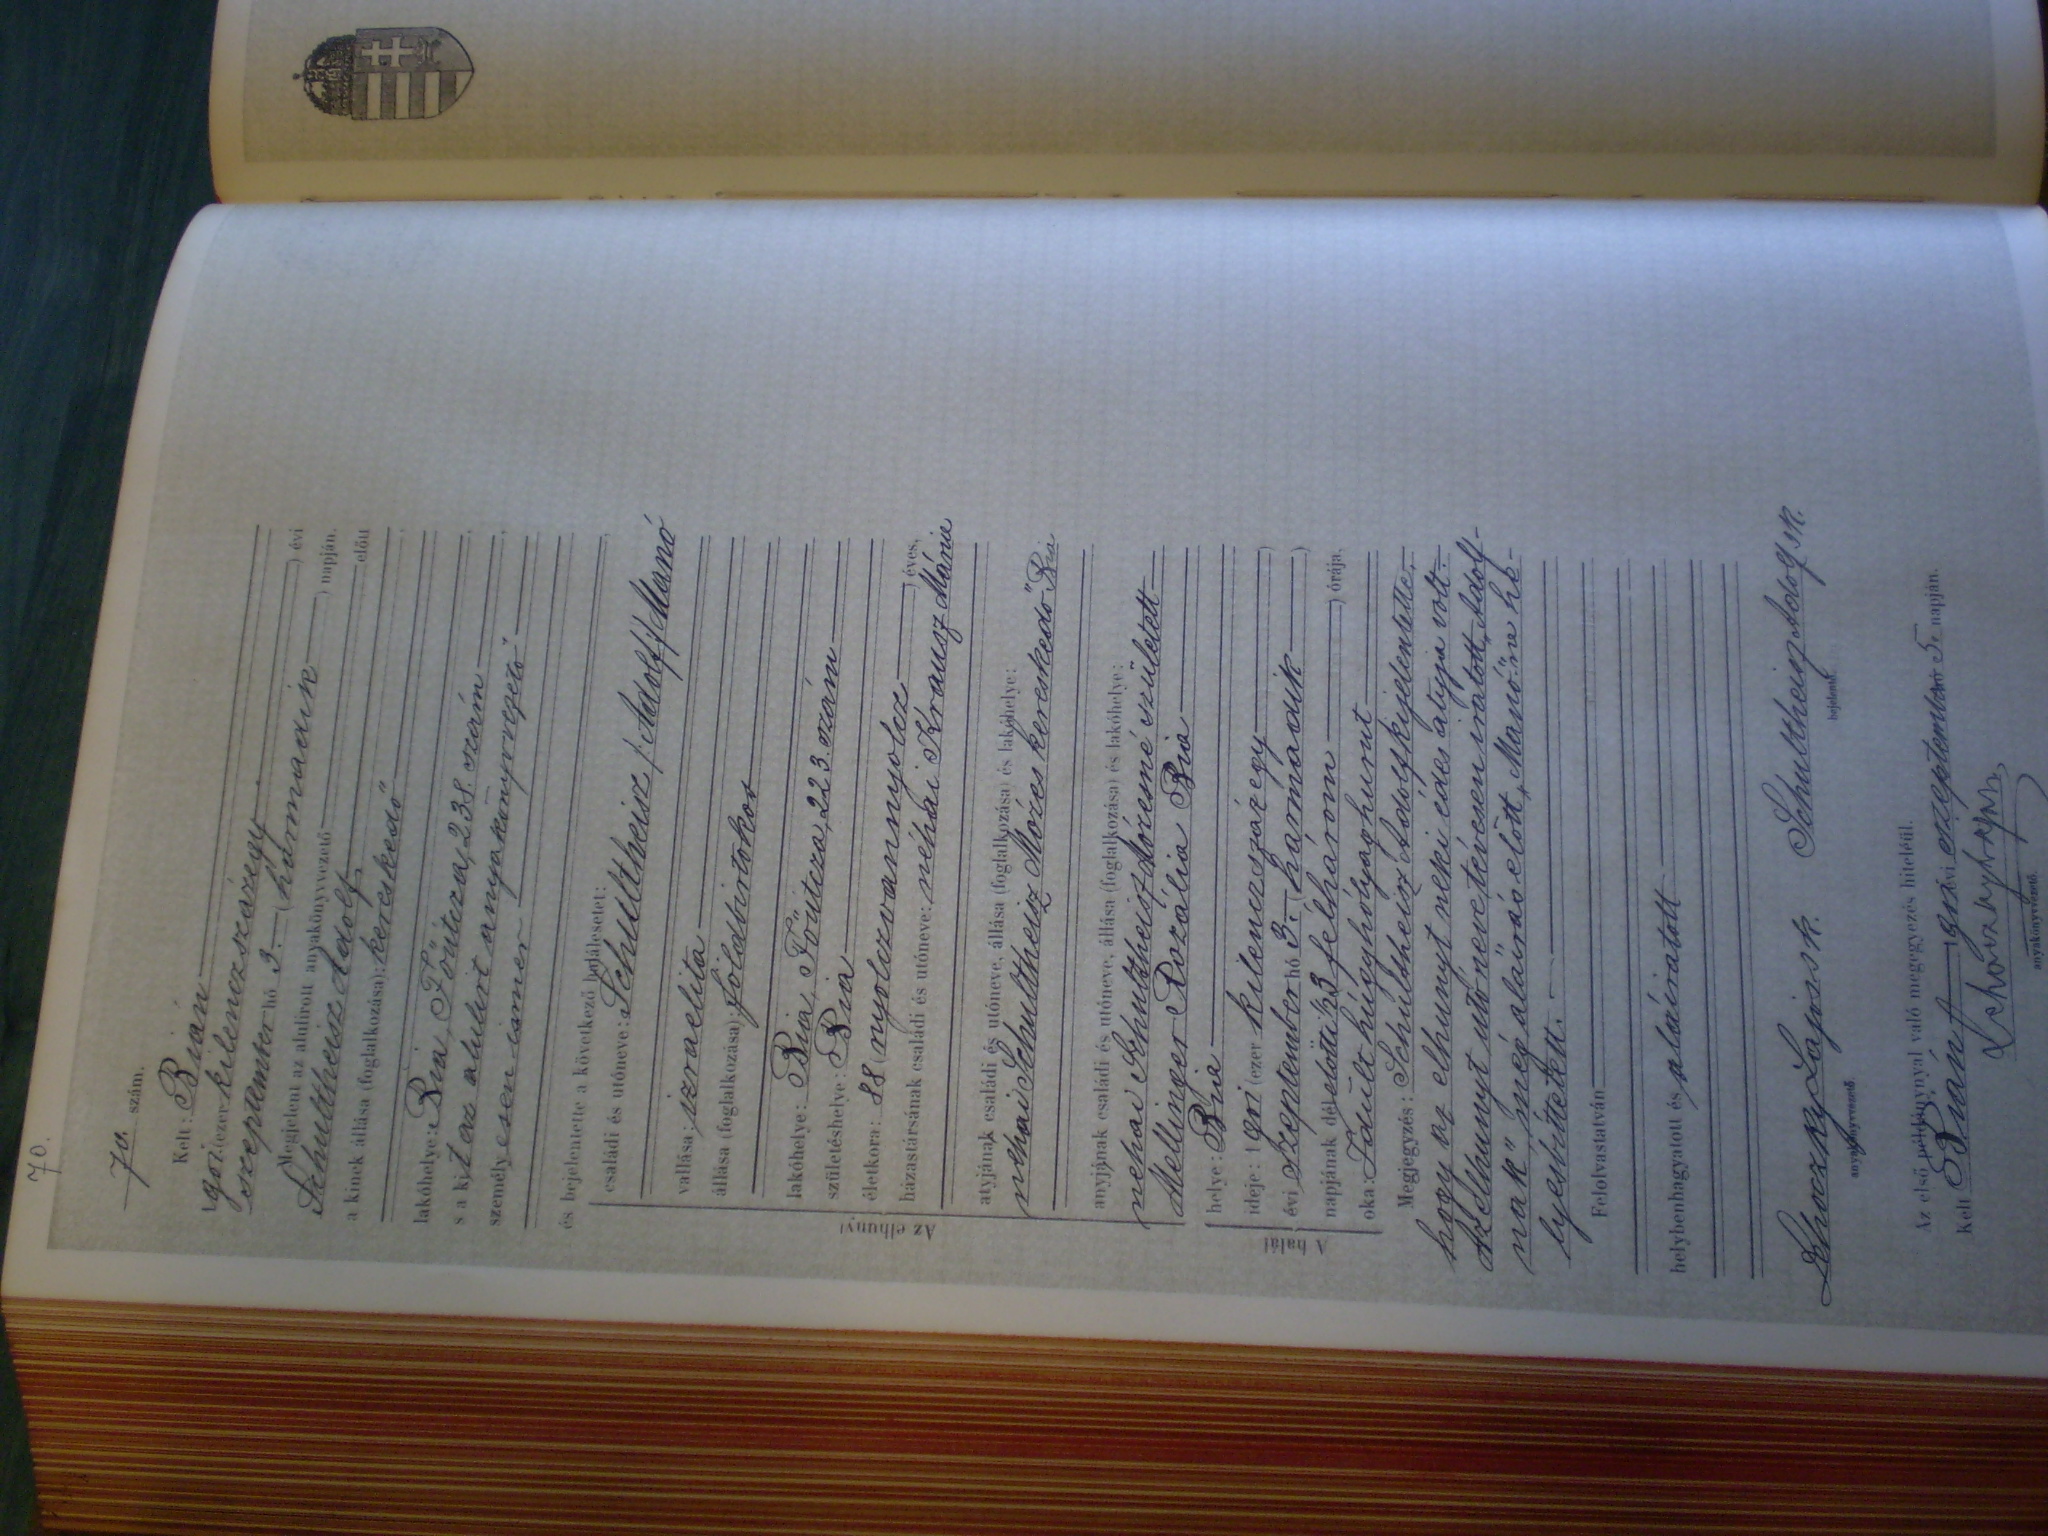 70.
70. szám.
Kelt: Bián
1901 (ezer kilenczszázegy
szeptember hó 3. (harmadik) évi
napján.
Megjelent az alulirott anyakönyvvezető előtt
Schultheisz Adolf
a kinek állása (foglalkozása): kereskedő
lakóhelye: Bia, Főutcza, 238. szám
s a kit az alulirt anyakönyvvezető
személyesen ismer
és bejelentette a következő halálesetet:
Az elhunyt
családi és utóneve: Schultheisz /: Adolf:/ Manó
vallása: izraelita
állása (foglalkozása): földbirtokos
lakóhelye: Bia, Főutcza, 223. szám
születéshelye: Bia
életkora: 88 (nyolczvannyolcz) éves,
házastársának családi és utóneve: néhai Krausz Mária
atyjának családi és utóneve, állása (foglalkozása) és lakóhelye:
néhai Schultheisz Mózes kereskedő Bia
anyjának családi és utóneve, állása (foglalkozása) és lakóhelye:
néhai Schultheisz Mózesné született
Mellinger Rozália Bia
A halál
helye: Bia
ideje: 1901 (ezer kilenczszáz egy)
évi szeptember hó 3. (harmadik)
napjának délelőtti ½3 félhárom) órája,
oka: Idült húgyhólyaghurut
Megjegyzés: Schuldheisz Adolf kijelentette,
hogy az elhunyt neki édes atyja volt.
Az elhunyt utóneve, tévesen iratott „Adolf-
nak" még aláirás előtt „Manó"-ra he-
lyesbíttetett.
Felolvastatván
helybenhagyatott és aláiratott
Schultheisz Adolf sk.
bejelentő.
Lajos sk.
anyakönyvvezető.
Az első példánnyal való megegyezés hiteléül.
Kelt Bián 1901 évi szeptember hó 5. napján.
anyakönyvvezető.